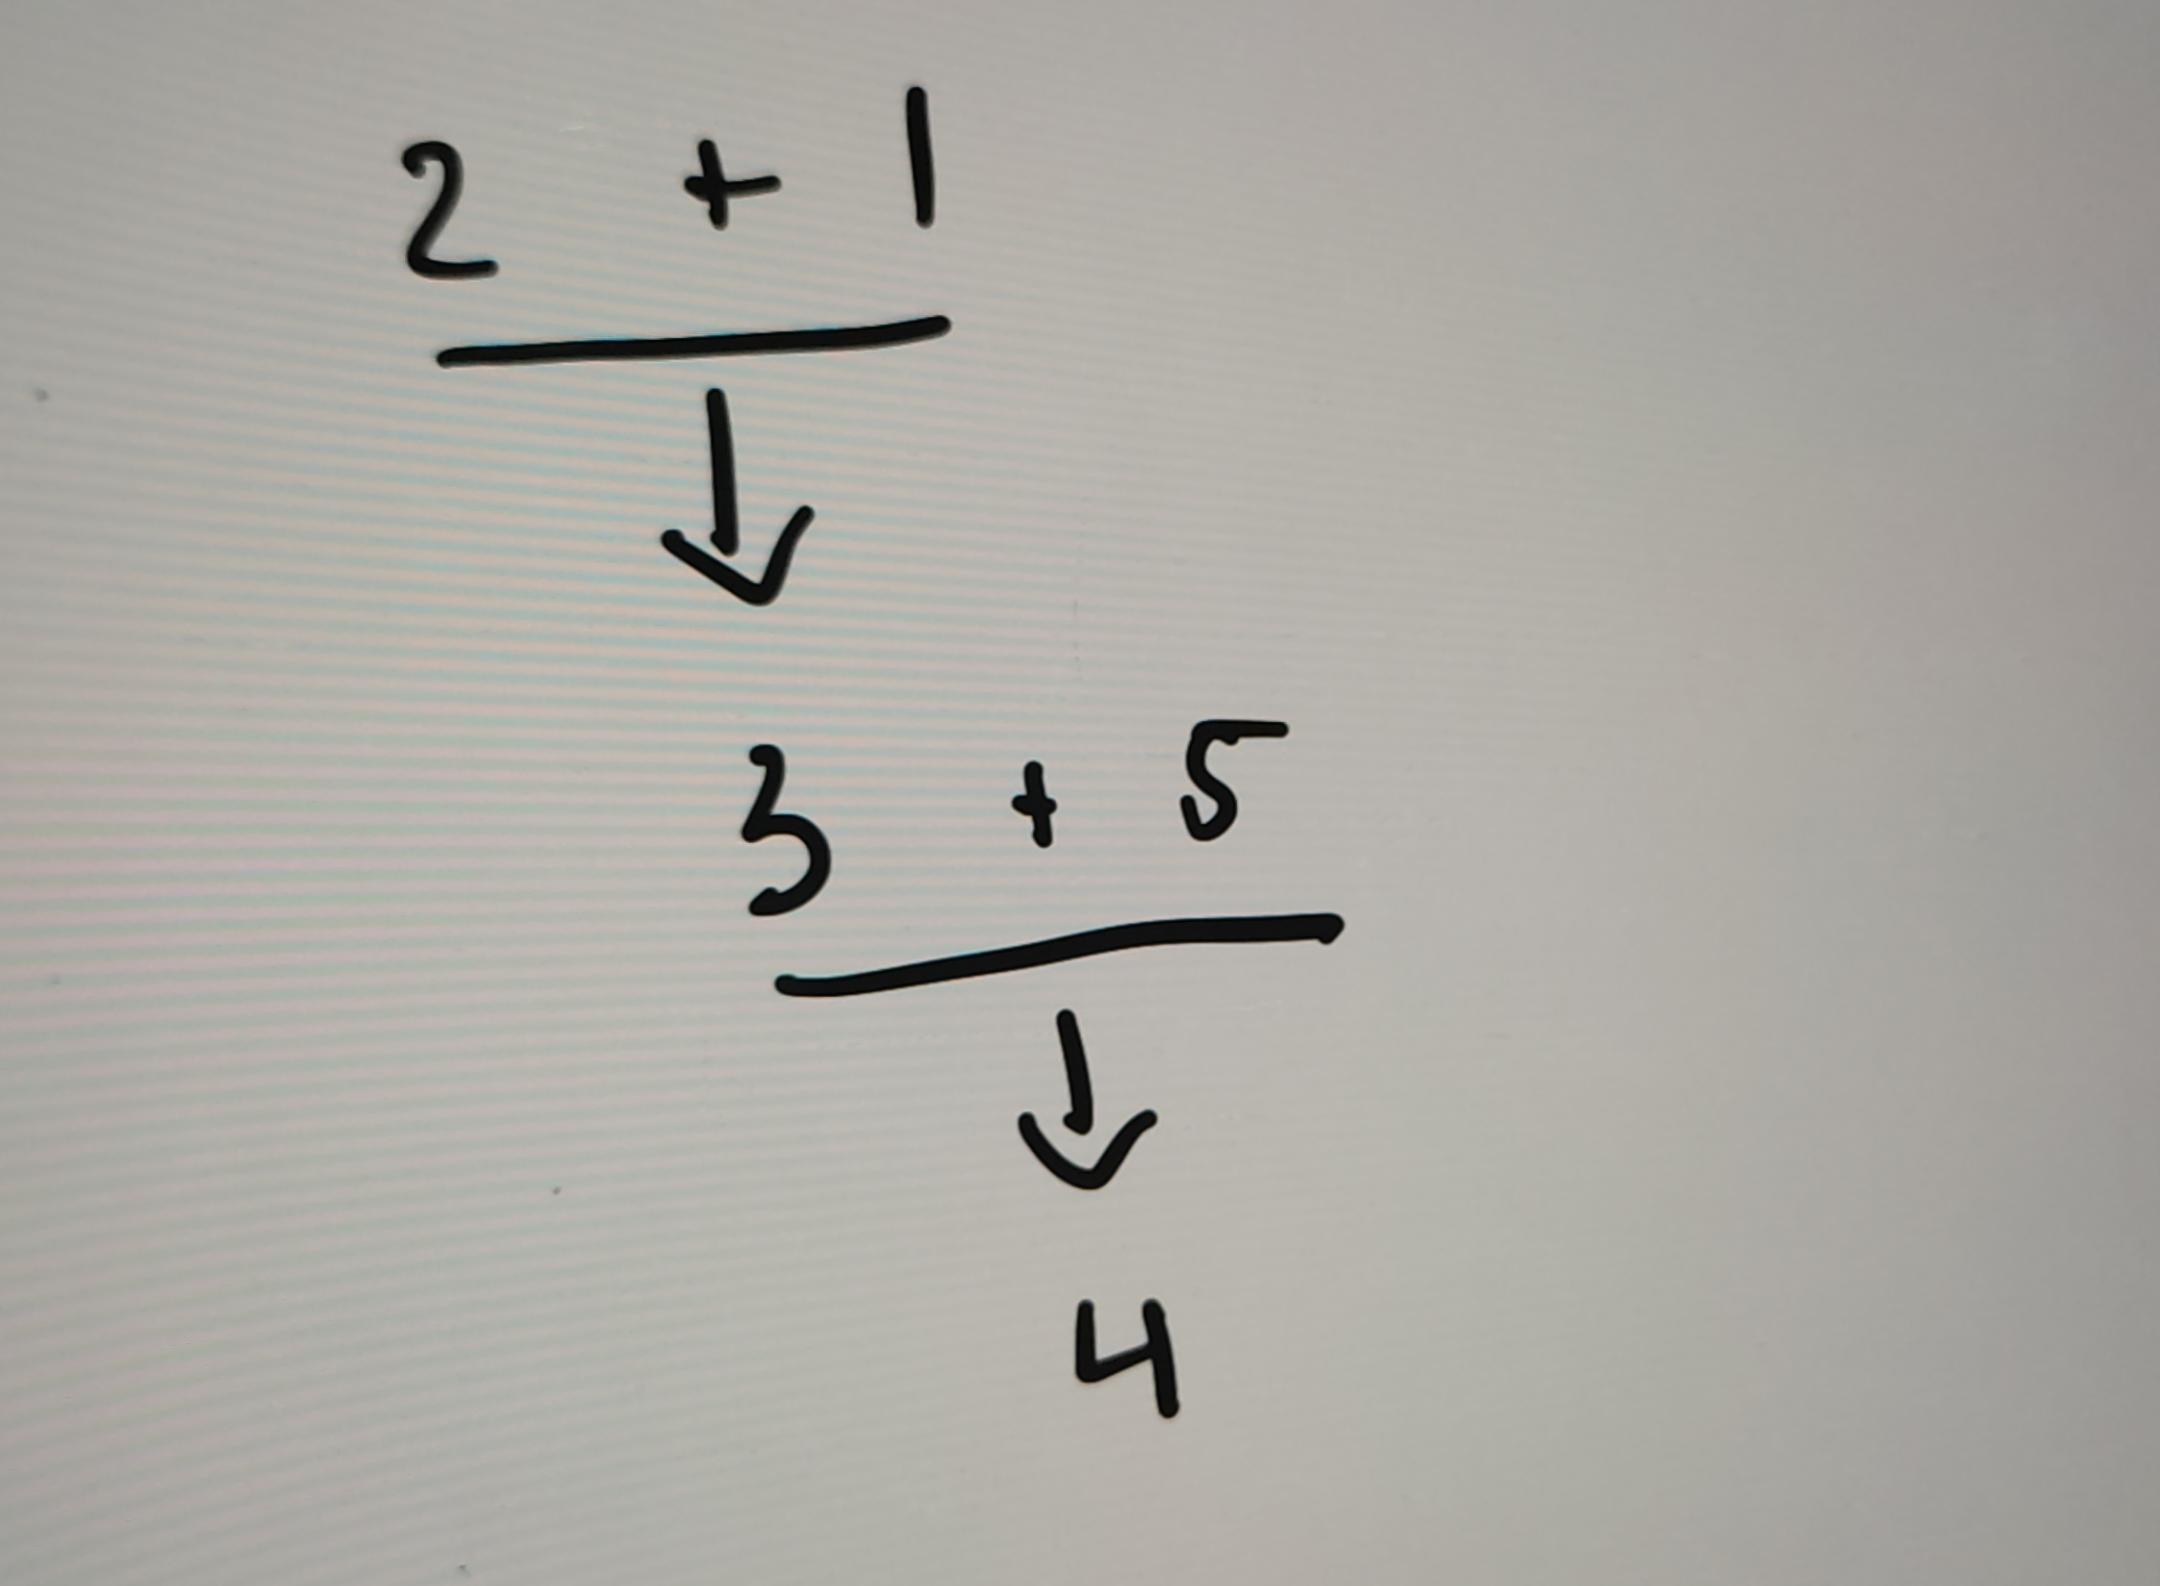 2 + 1
↓
3 + 5
↓
4